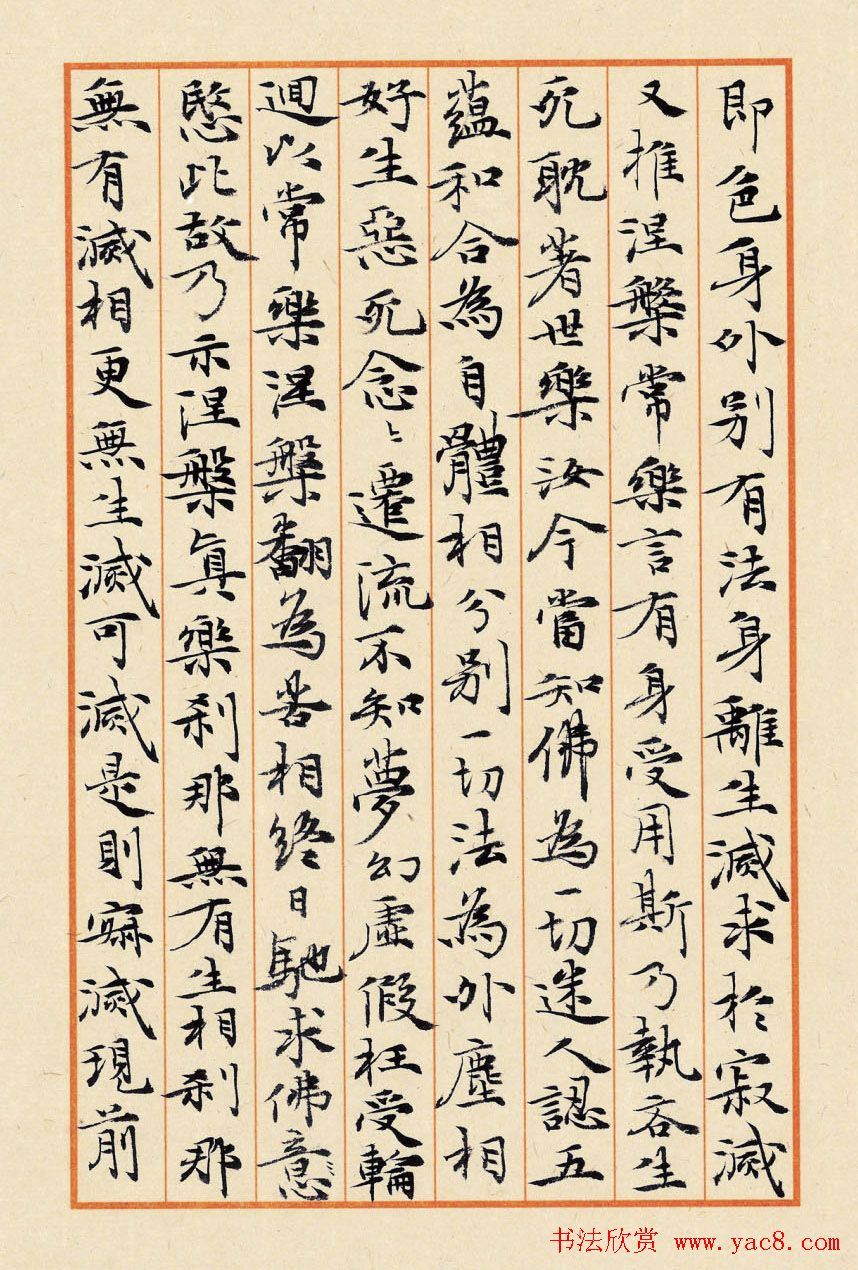 即色身外別有法身離生滅求於寂滅
又推涅槃常樂言有身受用斯乃執吝生
死耽著世樂汝今當知佛為一切迷人認五
蘊和合為自體相分別一切法為外塵相
好生惡死念念遷流不知夢幻虛假枉受輪
迴以常樂涅槃翻為苦相終日馳求佛意
愍此故乃示涅槃真樂剎那無有生相剎那
無有滅相更無生滅可滅是則寂滅現前
书法欣赏 www.yac8.com